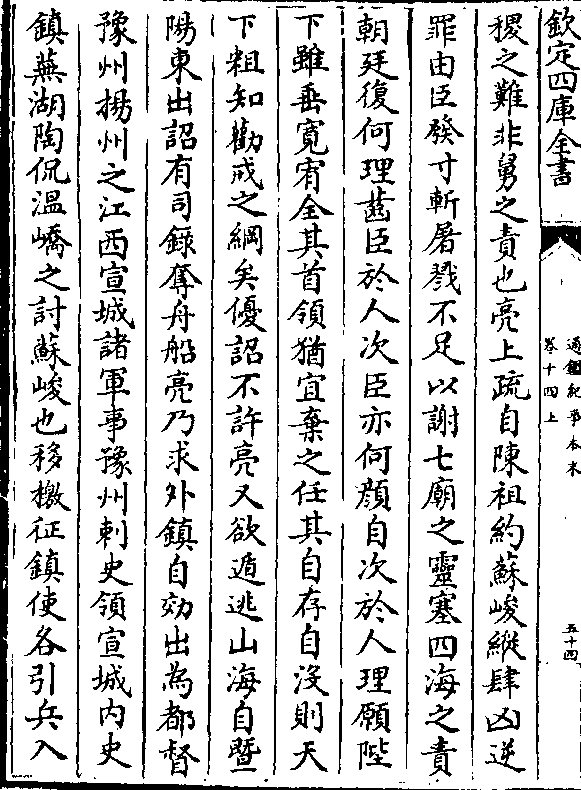 欽定四庫全書
通鑑紀事本末
卷十四上
五十四
稷之難非舅之責也亮上疏自陳祖約蘇峻縱肆凶逆
罪由臣發寸斬屠戮不足以謝七廟之靈塞四海之責
朝廷復何理齒臣於人次臣亦何顔自次於人理願陛
下雖垂寛宥全其首領猶宜棄之任其自存自没則天
下粗知勸戒之綱矣優詔不許亮又欲遁逃山海自暨
陽東出詔有司錄奪舟船亮乃求外鎮自効出為都督
豫州揚州之江西宣城諸軍事豫州刺史領宣城内史
鎮蕪湖陶侃温嶠之討蘇峻也移檄征鎮使各引兵入